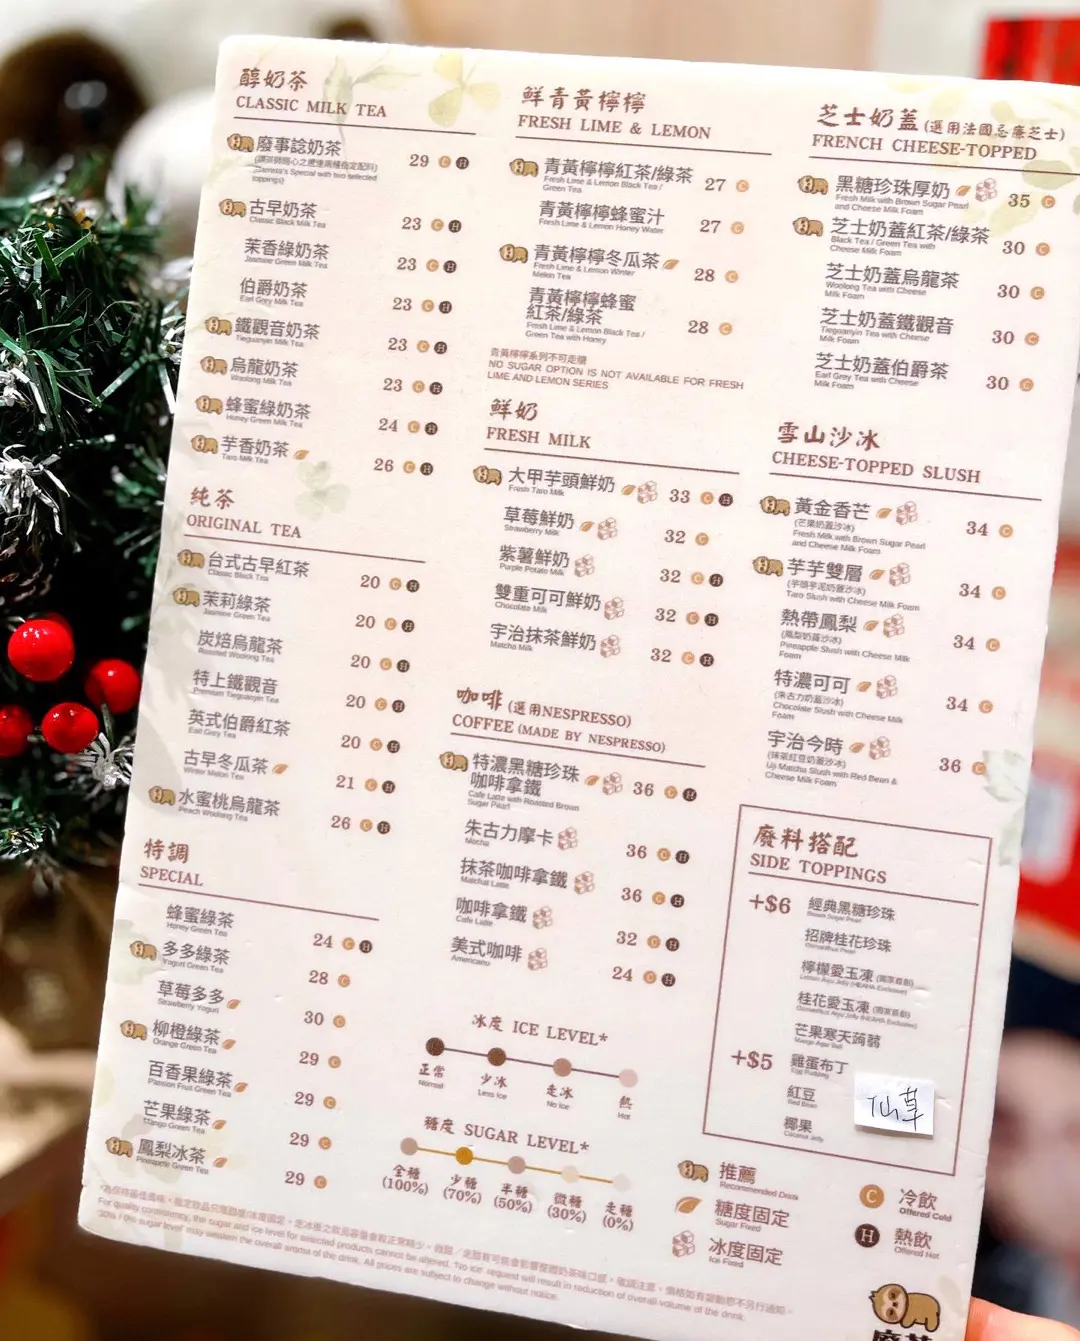 醇奶茶
CLASSIC MILK TEA
廢事諗奶茶 29 C H
古早奶茶 23 C H
Classic Black Milk Tea
茉香綠奶茶 23 C H
Jasmine Green Milk Tea
伯爵奶茶 23 C H
Earl Grey Milk Tea
鐵觀音奶茶 23 C H
Tieguanyin Milk Tea
烏龍奶茶 23 C H
Woolong Milk Tea
蜂蜜綠奶茶 24 C H
Honey Green Milk Tea
芋香奶茶 26 C H
Taro Milk Tea
純茶
ORIGINAL TEA
台式古早紅茶 20 C H
Classic Black Tea
茉莉綠茶 20 C H
Jasmine Green Tea
炭焙烏龍茶 20 C H
Roasted Woolong Tea
特上鐵觀音 20 C H
Premium Tieguanyin Tea
英式伯爵紅茶 20 C H
Earl Grey Tea
古早冬瓜茶 21 C H
Winter Melon Tea
水蜜桃烏龍茶 26 C H
Peach Woolong Tea
特調
SPECIAL
蜂蜜綠茶 24 C H
Honey Green Tea
多多綠茶 28 C
Yogurt Green Tea
草莓多多 30 C
Strawberry Yogurt
柳橙綠茶 29 C
Orange Green Tea
百香果綠茶 29 C
Passion Fruit Green Tea
芒果綠茶 29 C
Mango Green Tea
鳳梨冰茶 29 C
Pineapple Green Tea
鮮青黃檸檸
FRESH LIME & LEMON
青黃檸檸紅茶/綠茶 27 C
Fresh Lime & Lemon Black Tea /
Green Tea
青黃檸檸蜂蜜汁 27 C
Fresh Lime & Lemon Honey Water
青黃檸檸冬瓜茶 28 C
Fresh Lime & Lemon Winter
Melon Tea
青黃檸檸蜂蜜
紅茶/綠茶 28 C
Fresh Lime & Lemon Black Tea /
Green Tea with Honey
青黃檸檸系列不可走糖
NO SUGAR OPTION IS NOT AVAILABLE FOR FRESH
LIME AND LEMON SERIES
鮮奶
FRESH MILK
大甲芋頭鮮奶 33 C H
Fresh Taro Milk
草莓鮮奶 32 C
Strawberry Milk
紫薯鮮奶 32 C H
Purple Potato Milk
雙重可可鮮奶 32 C H
Chocolate Milk
宇治抹茶鮮奶 32 C H
Matcha Milk
咖啡 (選用NESPRESSO)
COFFEE (MADE BY NESPRESSO)
特濃黑糖珍珠
咖啡拿鐵 36 C H
Cafe Latte with Roasted Brown
Sugar Pearl
朱古力摩卡 36 C H
Mocha
抹茶咖啡拿鐵 36 C H
Matchat Latte
咖啡拿鐵 32 C H
Cafe Latte
美式咖啡 24 C H
Americano
冰度 ICE LEVEL*
正常 少冰 走冰 熱
Normal Less Ice No Ice Hot
糖度 SUGAR LEVEL*
全糖 少糖 半糖 微糖 走糖
(100%) (70%) (50%) (30%) (0%)
芝士奶蓋 (選用法國忌廉芝士)
FRENCH CHEESE-TOPPED
黑糖珍珠厚奶 35 C
Fresh Milk with Brown Sugar Pearl
and Cheese Milk Foam
芝士奶蓋紅茶/綠茶 30 C
Black Tea / Green Tea with
Cheese Milk Foam
芝士奶蓋烏龍茶 30 C
Woolong Tea with Cheese
Milk Foam
芝士奶蓋鐵觀音 30 C
Tieguanyin Tea with Cheese
Milk Foam
芝士奶蓋伯爵茶 30 C
Earl Grey Tea with Cheese
Milk Foam
雪山沙冰
CHEESE-TOPPED SLUSH
黃金香芒 34 C
(芒果奶蓋沙冰)
Fresh Milk with Brown Sugar Pearl
and Cheese Milk Foam
芋芋雙層 34 C
(芋頭芋泥奶蓋沙冰)
Taro Slush with Cheese Milk Foam
熱帶鳳梨 34 C
(鳳梨奶蓋沙冰)
Pineapple Slush with Cheese Milk
Foam
特濃可可 34 C
(朱古力奶蓋沙冰)
Chocolate Slush with Cheese Milk
Foam
宇治今時 36 C
(抹茶紅豆奶蓋沙冰)
Uji Matcha Slush with Red Bean &
Cheese Milk Foam
廢料搭配
SIDE TOPPINGS
+$6 經典黑糖珍珠
Brown Sugar Pearl
招牌桂花珍珠
Osmanthus Pearl
檸檬愛玉凍 (獨家首創)
桂花愛玉凍 (獨家首創)
芒果寒天蒟蒻
+$5 雞蛋布丁
Egg Pudding
紅豆
Red Bean
仙草
椰果
Coconut Jelly
推薦
Recommended Drink
糖度固定
Sugar Fixed
冰度固定
Ice Fixed
C 冷飲
Offered Cold
H 熱飲
Offered Hot
For quality consistency, the sugar and ice level for selected products cannot be altered. 'No ice' request will result in reduction of overall volume of the drink.
'30% / 0% sugar level' may weaken the overall aroma of the drink. All prices are subject to change without notice.